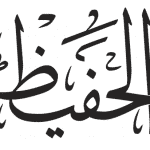 الحفيظ